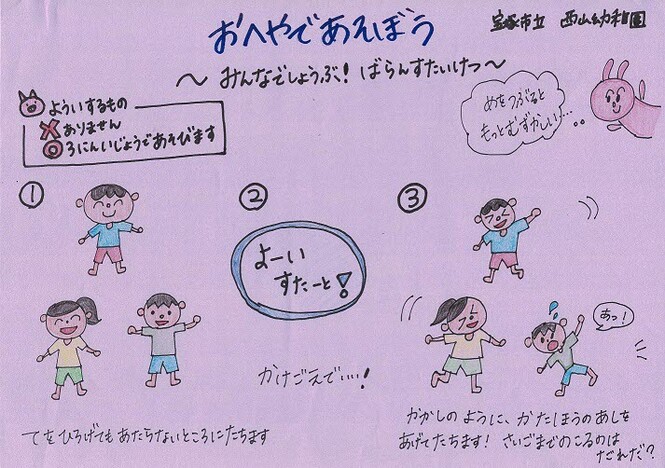 おへやであそぼう
宝塚市立 西山幼稚園
～ みんなでしょうぶ! ばらんすたいけつ ～
よういするもの
× ありません
◎ 3にんいじょうであそびます
めをつぶると
もっとむずかしい…
①
②
③
よーい
すたーと!
あっ!
かけごえで…!
てをひろげてもあたらないところにたちます
かかしのように、かたほうのあしを
あげてたちます! さいごまでのこるのは
だれだ?